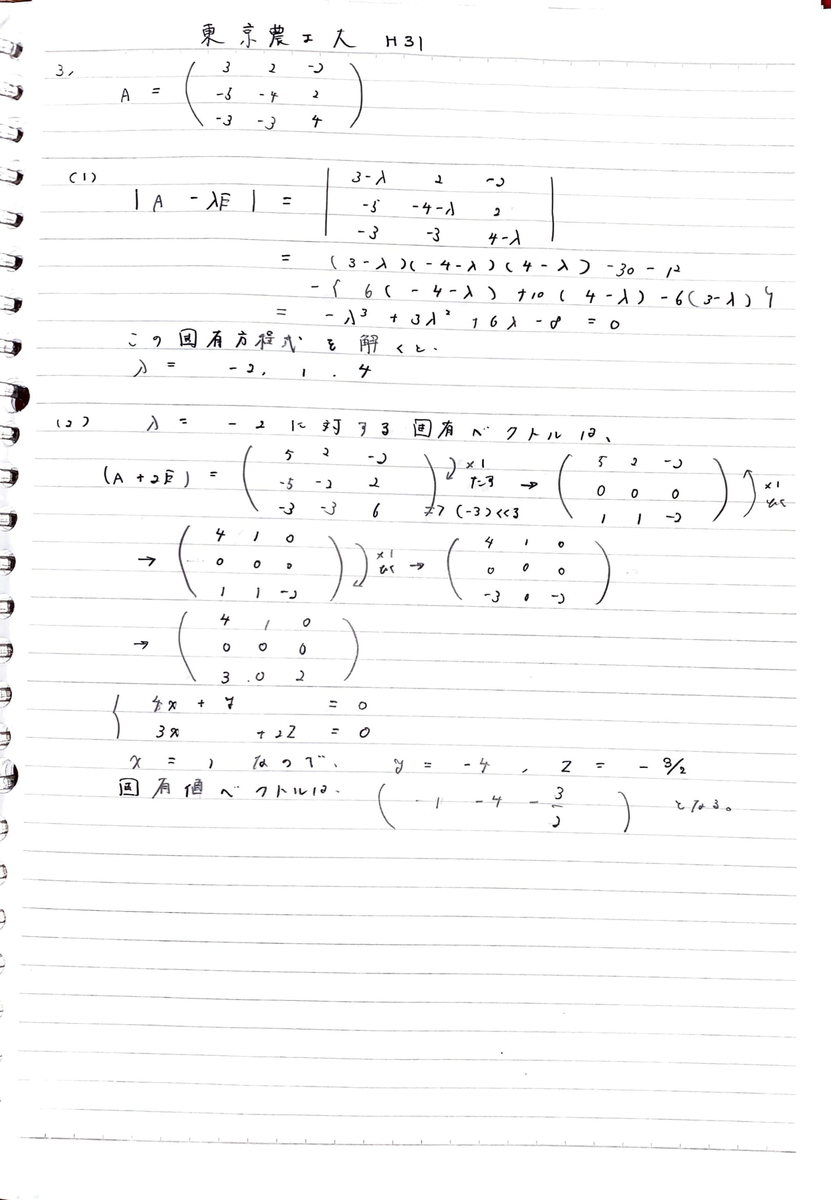 東京農工大 H31
3,
A = ( 3 2 -2
-5 -4 2
-3 -3 4 )
(1)
|A - λE| = | 3-λ 2 -2
-5 -4-λ 2
-3 -3 4-λ |
= (3-λ)(-4-λ)(4-λ) -30 -12
- { 6(-4-λ) +10(4-λ) -6(3-λ) }
= -λ³ + 3λ² + 6λ - 8 = 0
この固有方程式を解くと、
λ = -2, 1, 4
(2) λ = -2 に対する固有ベクトルは、
(A+2E) = ( 5 2 -2
-5 -2 2
-3 -3 6 ) ×1 たす → ( 5 2 -2
0 0 0
1 1 -2 ) ×1 ひく
→ ( 4 1 0
0 0 0
1 1 -2 ) ×1 ひく → ( 4 1 0
0 0 0
-3 0 -2 )
→ ( 4 1 0
0 0 0
3 0 2 )
{ 4x + y = 0
3x + 2z = 0
x = 1 なので、 y = -4, z = -3/2
固有値ベクトルは、 ( 1 -4 -3/2 ) となる。